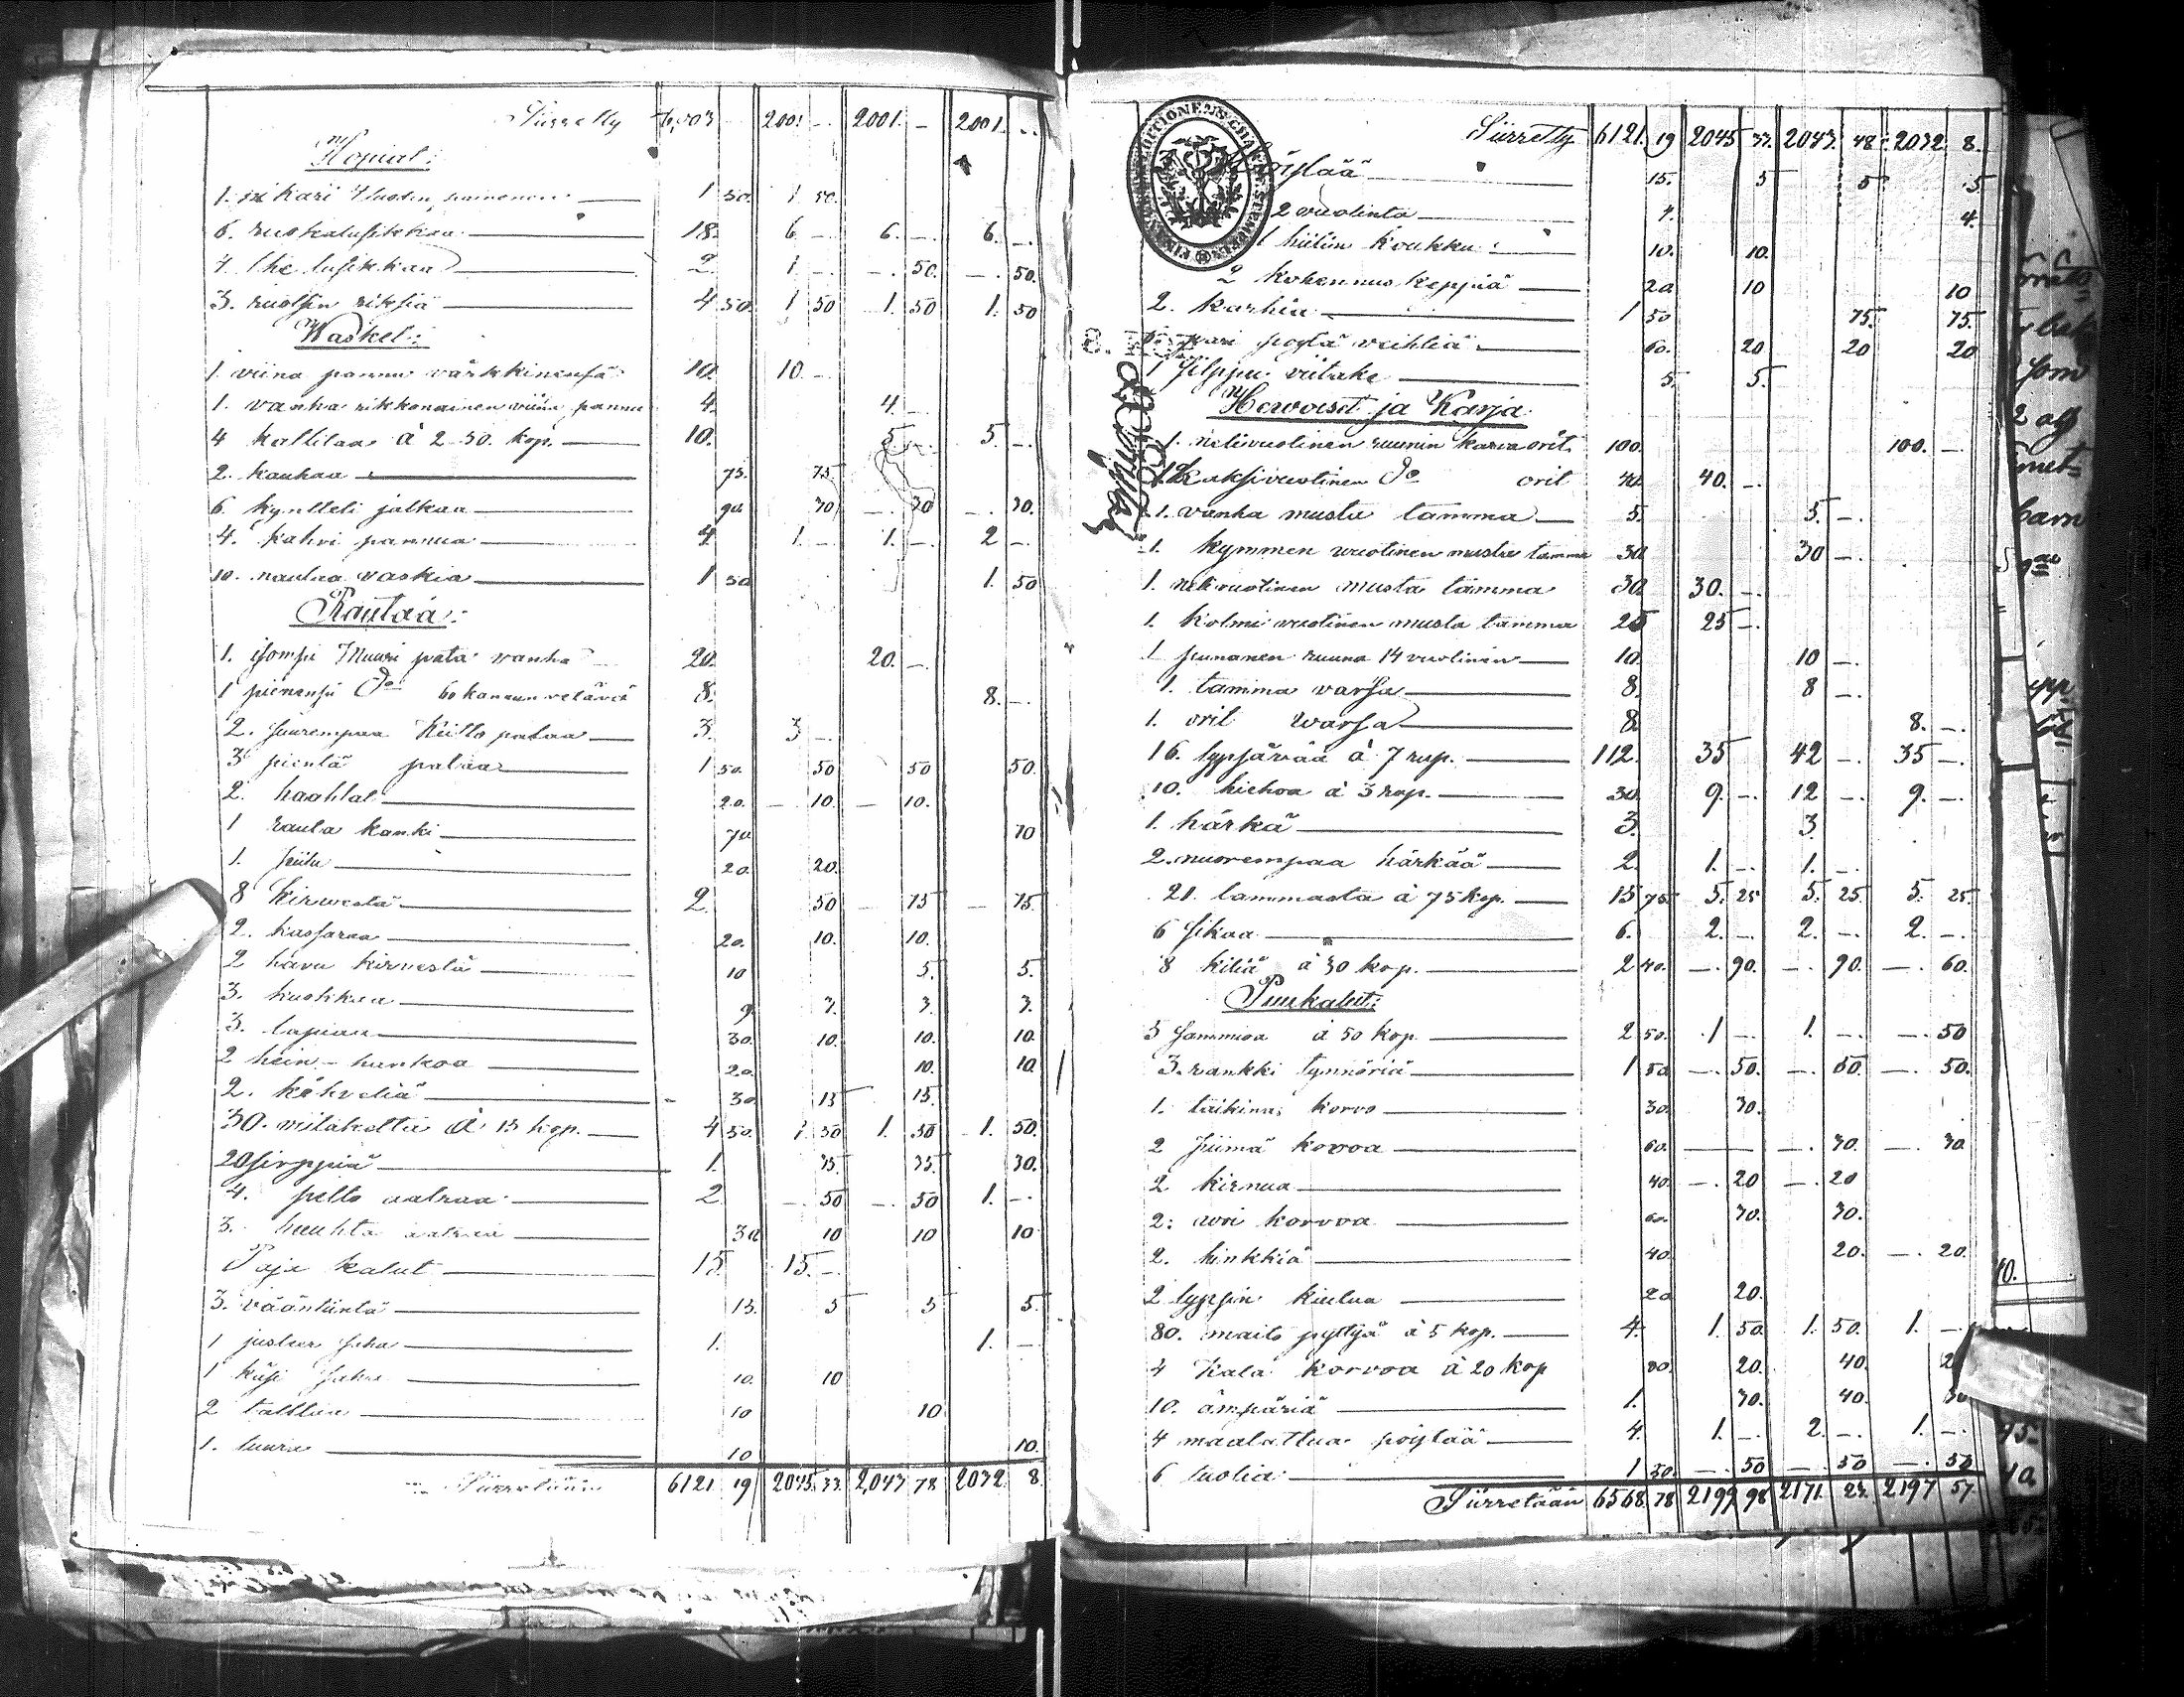 Siirretty 6,003 2001. - 2001. - 2001. -
Hopiat:
1. pikari 1 50. 1. 50.
6. ruokalusikkaa 18. 6. - 6. - 6. -
4. the lusikkaa 2. 1. - - 50. - 50.
3. ruotsin riksiä 4 50. 1 50 1. 50 1. 50
Wasket:
1. viina pannu värkkinensä 10. 10. -
1. vanha rikkonainen viina pannu 4. 4. -
4 kattilaa à 2. 50. kop. 10. 5. - 5. -
2. kauhaa 75. 75
6 kyntteli jalkaa 90 30 - 30 - 30.
4. kahvi pannua 4. 1. - 1. - 2 -
10. naulaa vaskia 1 50 1. 50
Rautaa:
1. isompi Muuri pata vanha 20. 20. -
1 pienempi Do 60 kannun vetävä 8. 8. -
2. suurempaa Keitto pataa 3. 3 -
3 pientä pataa 1 50. 50 50 50.
2. haahlat 20. - 10. - 10.
1 rauta kanki 70 70
1. piilu 20. 20.
8 kirvestä 2. 50 - 75 - 75.
2. kassaraa 20. 10. 10.
2 havu kirvestä 10 5. 5.
3. kuokkaa 9. 3. 3. 3.
3. lapiaa 30. 10. 10. 10.
2 hein-hankoa 20 10. 10.
2. köhveliä 30. 15 15.
30. viitakettä à 15 kop. 4 50. 1 50 1. 50 1. 50.
20 sirppiä 1. 35. 35. 30.
4. pelto aatraa 2 - 50 - 50 1. -
3. huuhta aatraa 30 10 10 10
Paja kalut 15. 15. -
3. vääntiintä 15. 5 5 5.
1 justeer saha 1. 1. -
1 käsi saha 10. 10
2 talttaa 10 10
1. tuura 10 10.
Siirretään 6121 19 2045. 33. 2,043 78 2032. 8.
Siirretty 6121. 19 2045 33. 2043. 48. 2032. 8.
15. 5 5. 5
2 vuolinta 4. 4.
1 hiilin koukku 10. 10.
2 kohennus keppiä 20 10 10
2. karhia 1 50 75. 75.
pari pöytä veihtiä 60. 20 20 20
1 silppu viitake 5. 5.
Hevoiset ja Karja
1. nelivuotinen ruunin karva orit. 100. 100. -
1. kaksivuotinen Do orit 40. 40. -
1. vanha musta tamma 5. 5. -
1. kymmen vuotinen musta tamma 30 30 -
1. neli vuotinen musta tamma 30 30. -
1. kolmi vuotinen musta tamma 25 25 -
1 punanen ruuna 14 vuotinen 10. 10 -
1. tamma varsa 8. 8 -
1. orit warsa 8. 8. -
16. lypsävää à 7 rup. 112. 35 42 - 35 -
10. hiehoa à 3 rup. 30. 9. - 12 - 9. -
1. härkä 3. 3.
2. nuorempaa härkää 2 1. - 1. -
21. lammasta à 75 kop. 15 75. 5. 25 5. 25. 5. 25.
6 sikaa 6. 2. - 2. - 2. -
8 kiliä à 30 kop. 2 40. - 90. - 90. - 60.
Puukalut:
5 sammioa à 50 kop. 2 50. 1 - 1. - - 50
3. rankki tynnöriä 1 50 - 50. - 50. - 50.
1. taikina korvo 30. 30.
2 piimä korvoa 60. - 30. - 30.
2 kirnua 40. - 20 - 20
2: korvoa 60. 30. 30.
2. hinkkiä 40. 20. - 20.
2 lypsin kiulua 20 20.
80. maito pyttyä à 5 kop. 4. 1. 50. 1. 50. 1. -
4 kala korvoa à 20 kop 80. 20. 40.
10. ämpäriä 1. 30. 40. 30
4 maalattua pöytää 4. 1. - 2. - 1. -
6 tuolia 1 50. - 50 - 50 - 50
Siirretään 6568. 78 2199 98 2171. 23. 2197 57.